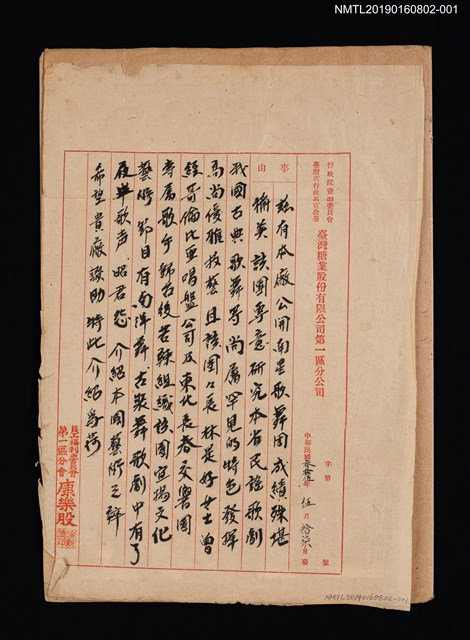 NMTL20190160802-001
行政院資源委員會
臺灣省行政長官公署
臺灣糖業股份有限公司第一區分公司
中華民國 年 伍 月 拾 日發
字第 號
事由
茲有本廠公開南星歌舞團成績殊堪
獅美該團專意研究本省民謠歌劇
我國古典歌舞等尚屬罕見的特色發揮
高尚優雅技藝且該團々長林是好女士曾
經哥倫比亞唱盤公司及東北長春交響團
專屬歌手歸台後苦練組織該團宣揚文化
藝術節目有南洋舞古裝舞歌劇中有了
夜半歌声昭君怨介紹本國藝術之粹
希望貴廠護助特此介紹為荷
員工福利委員會
第一區分會
康樂股
NMTL20190160802-001